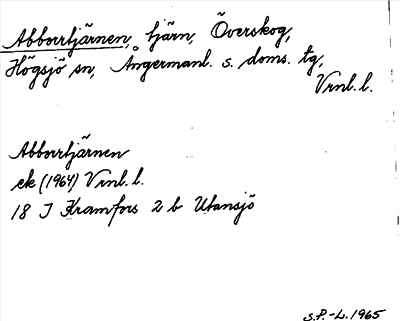 Abborrtjärnen, tjärn, Överskog,
Högsjö sn, Ångermanl. s. doms. tg,
Vrnl. l.
Abborrtjärnen
ek (1964) Vrnl. l.
18 J Kramfors 2 b Utansjö
S.P.-L. 1965